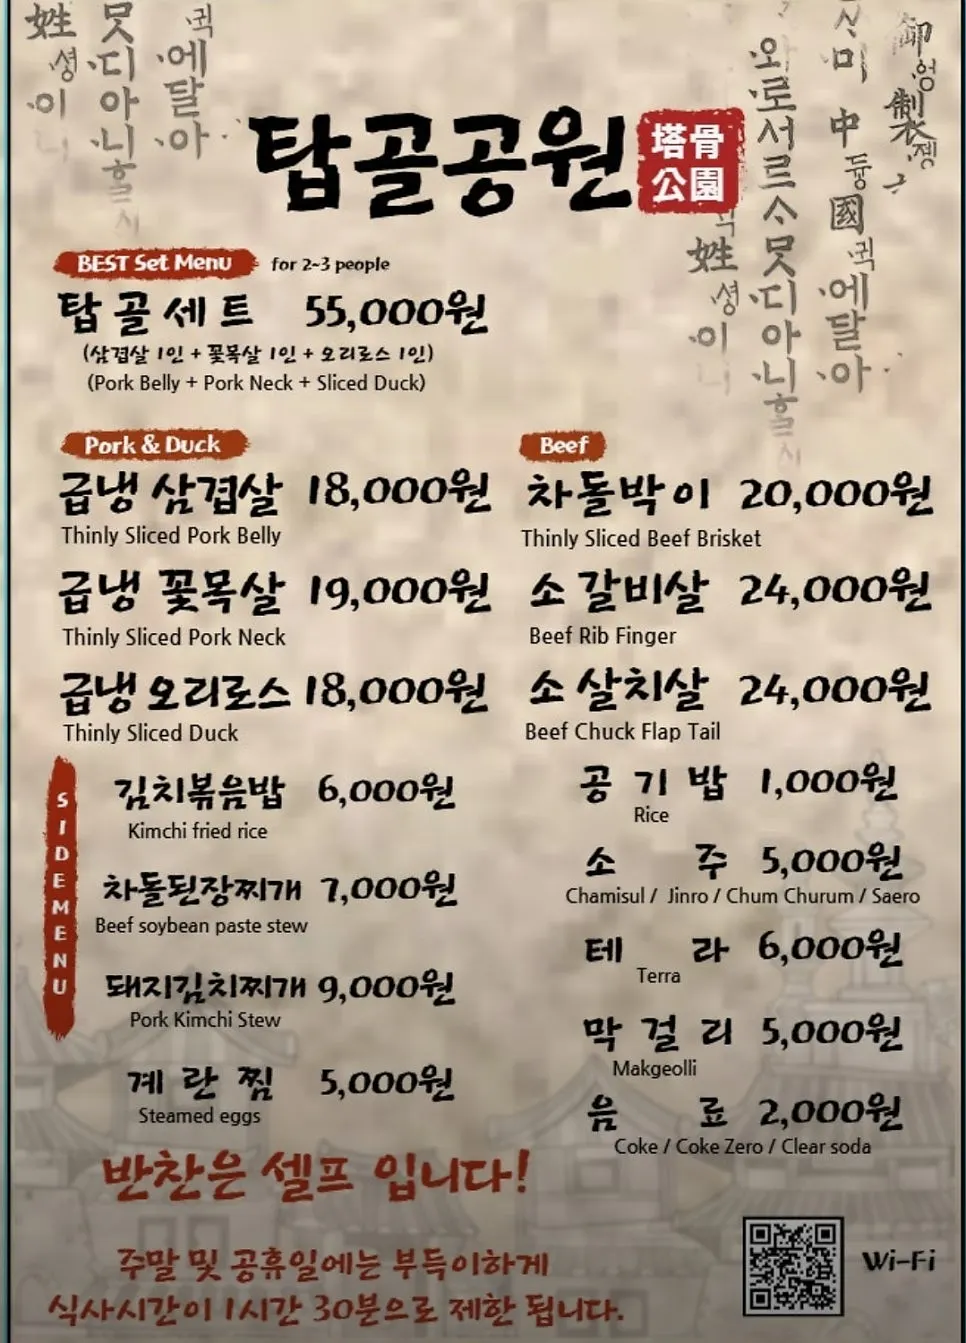 姓 뭇 귁
셩 ·디 ·에
·이 아 달
니 ·아
홇
시
御
엉
製
졩
미
中
듕
國
귁
·에
달
·아
와
·로
서
르
ᄉ
뭇
·디
아
니
홇
시
姓
셩
·이
탑골공원
塔骨
公園
BEST Set Menu for 2~3 people
탑골세트 55,000원
(삼겹살 1인 + 꽃목살 1인 + 오리로스 1인)
(Pork Belly + Pork Neck + Sliced Duck)
Pork & Duck
급냉 삼겹살 18,000원
Thinly Sliced Pork Belly
급냉 꽃목살 19,000원
Thinly Sliced Pork Neck
급냉 오리로스 18,000원
Thinly Sliced Duck
Beef
차돌박이 20,000원
Thinly Sliced Beef Brisket
소 갈비살 24,000원
Beef Rib Finger
소 살치살 24,000원
Beef Chuck Flap Tail
SIDE MENU
김치볶음밥 6,000원
Kimchi fried rice
차돌된장찌개 7,000원
Beef soybean paste stew
돼지김치찌개 9,000원
Pork Kimchi Stew
계란찜 5,000원
Steamed eggs
공기밥 1,000원
Rice
소주 5,000원
Chamisul / Jinro / Chum Churum / Saero
테라 6,000원
Terra
막걸리 5,000원
Makgeolli
음료 2,000원
Coke / Coke Zero / Clear soda
반찬은 셀프 입니다!
주말 및 공휴일에는 부득이하게
식사시간이 1시간 30분으로 제한 됩니다.
Wi-Fi